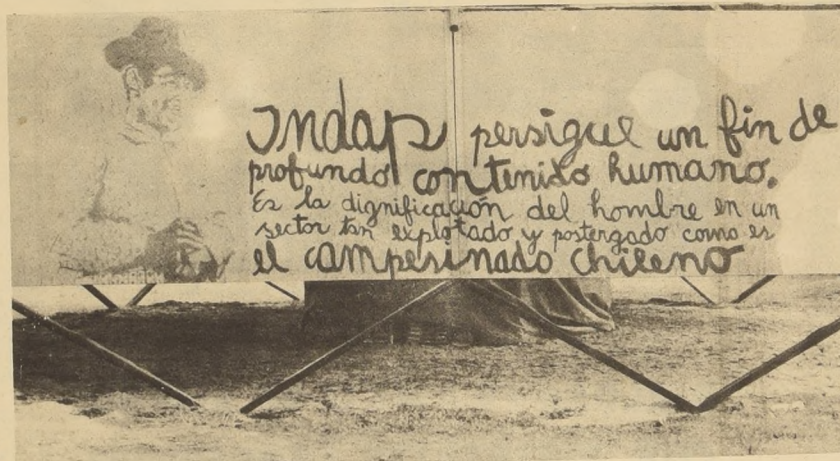 Indap persigue un fin de
profundo contenido humano.
Es la dignificación del hombre en un
sector tan explotado y postergado como es
el campesinado chileno